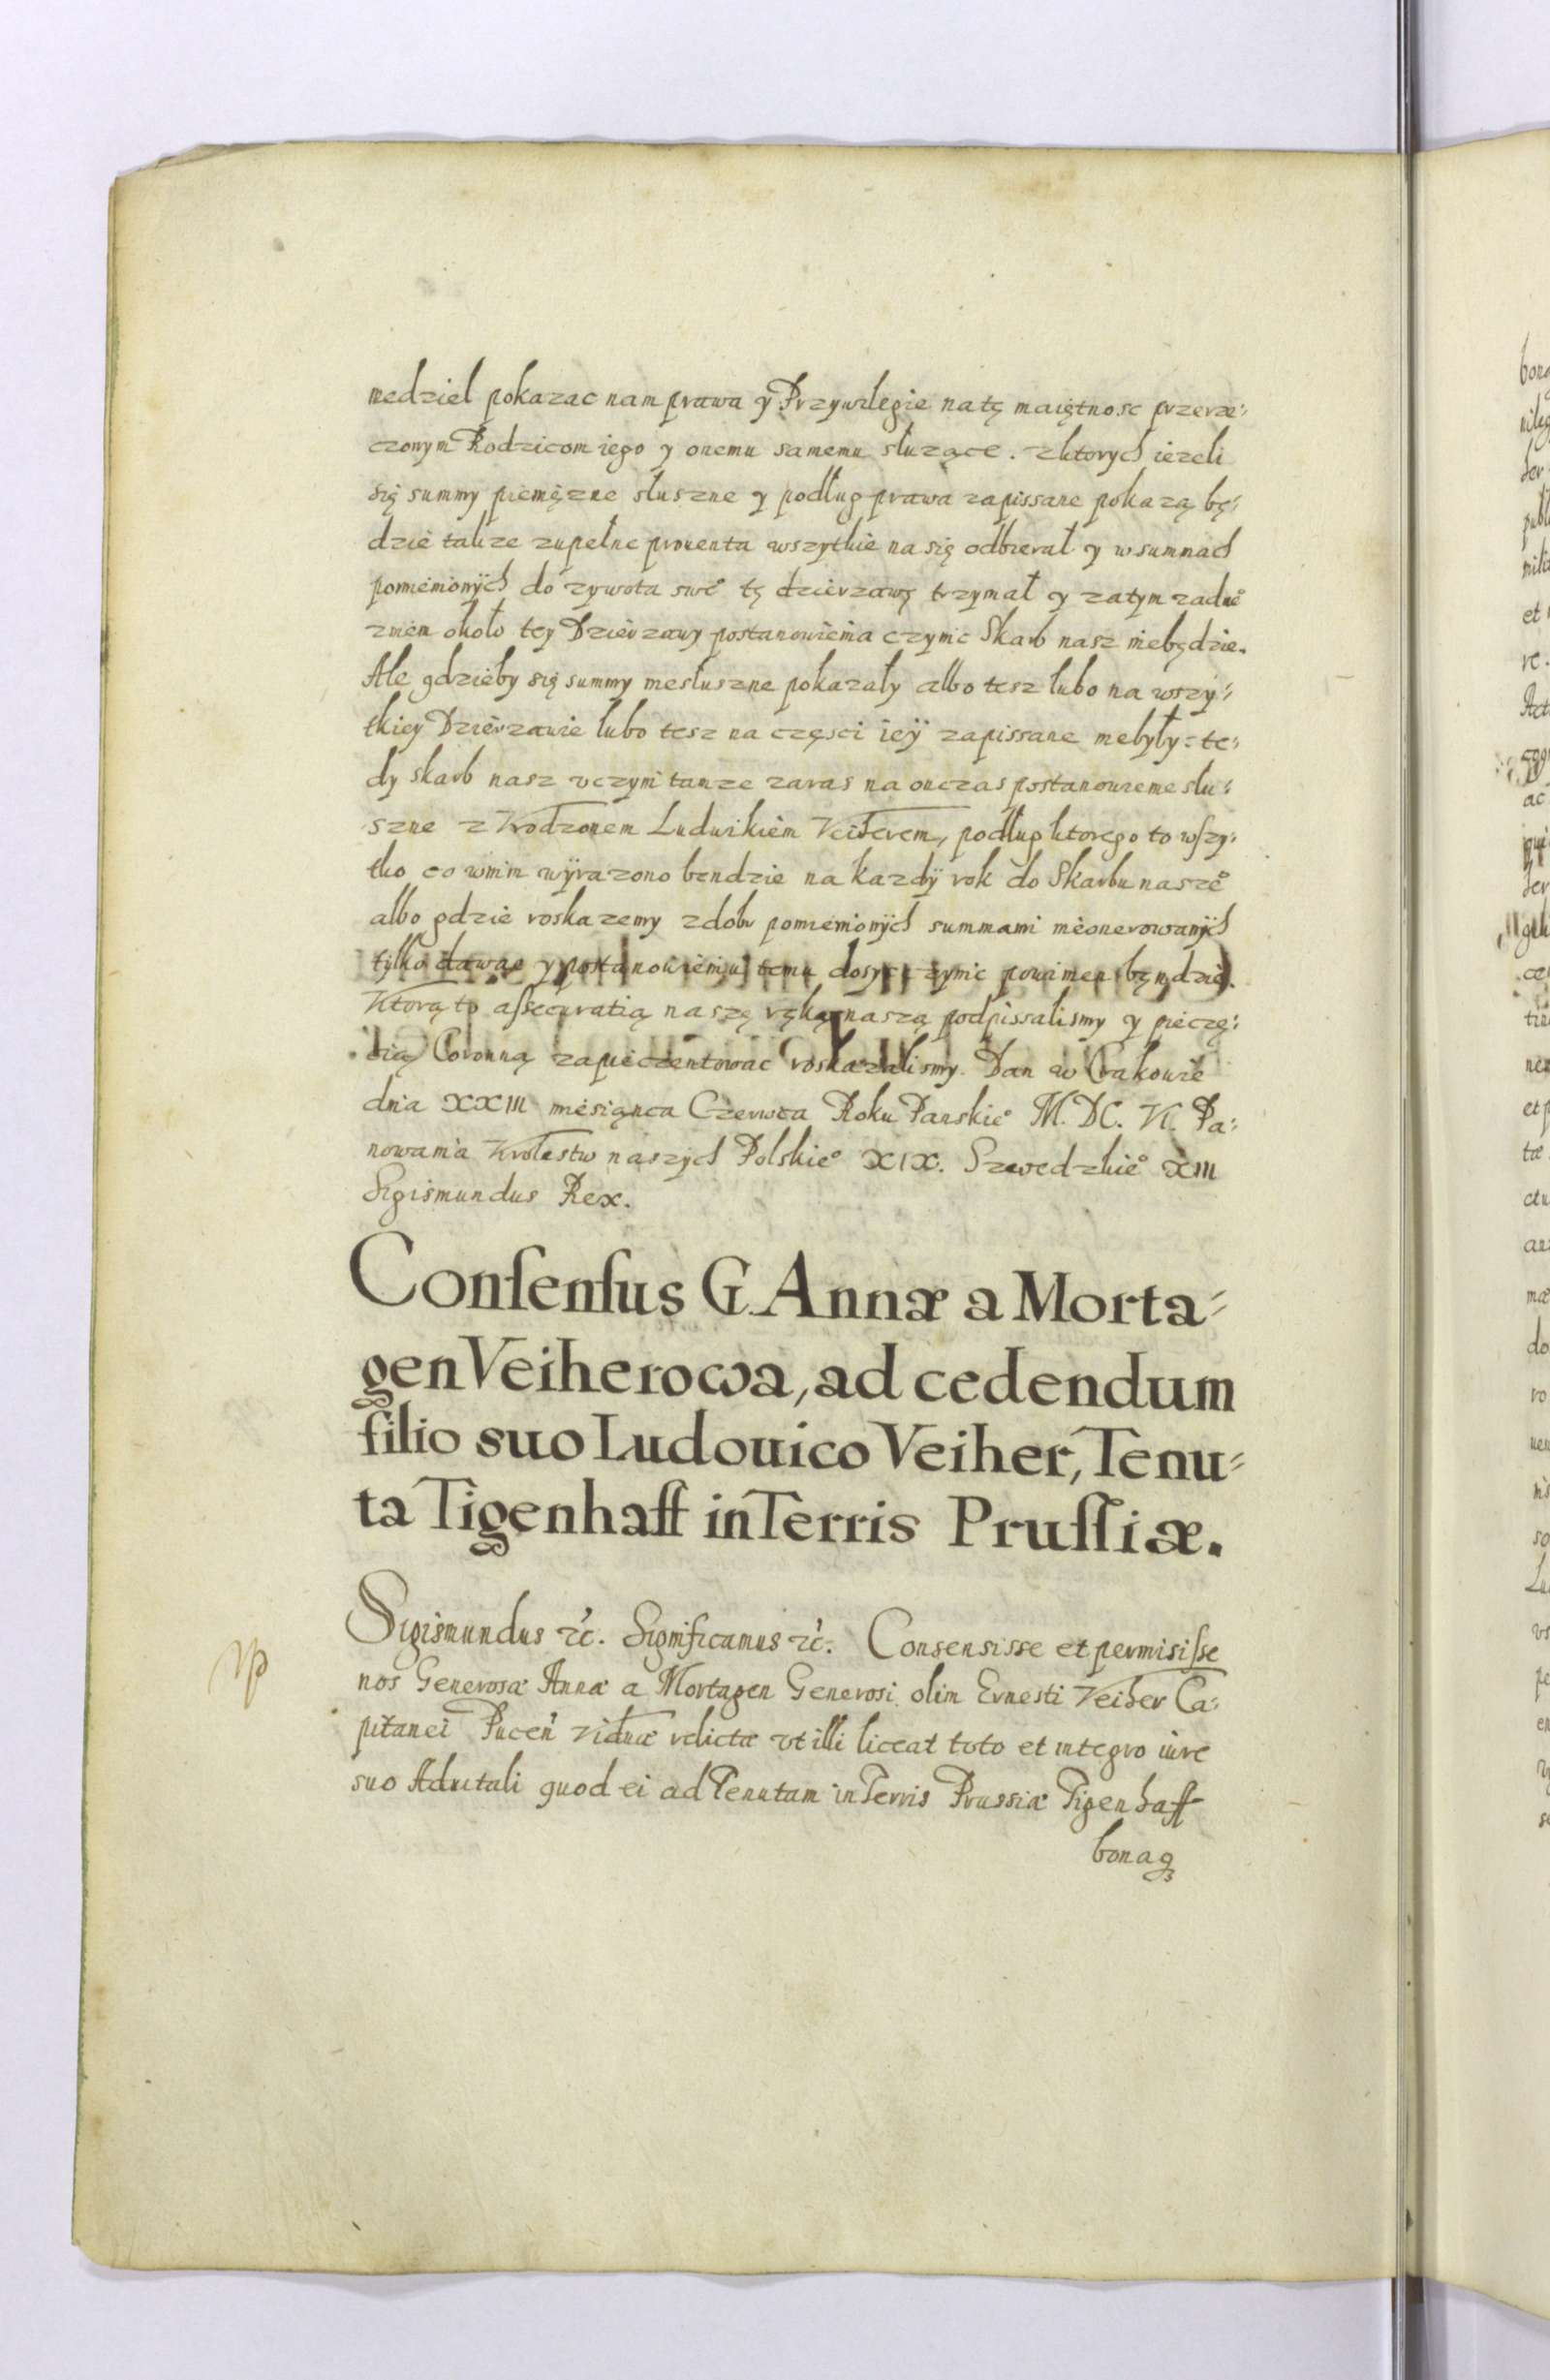 nedziel pokazac nam prawa y Przywilegie na tę maiętnosc przerze⸗
czonym Rodzicom iego y onemu samemu słuzące. z ktorych iezeli
się summy pienięzne słuszne y podług prawa zapissane pokazą bę⸗
dzie takze zupełne prouenta wszytkie na się odbierał y w summach
pomienionÿch do zywota swe° tę dzierzawę trzymał y zatym zadne°
z niem około tey Dzierzawy postanowienia czynic Skarb nasz niebędzie.
Ale gdzieby się summy niesłuszne pokazały albo tesz lubo na wszy⸗
tkiey Dzierzawie lubo tesz na częsci ieÿ zapissane niebyły: te⸗
dy skarb nasz vczyni tamze zaras na onczas postanowienie słu⸗
szne z Vrodzonem Ludwikiem Veiherem, podług ktorego to wszy⸗
tko co w nim wÿrazono bendzie na kazdÿ rok do Skarbu nasze°
albo gdzie roskazemy z dobr pomienionÿch summami nieonerowanÿch
tylko dawac y postanowieniu temu dosyc czynic powinien bęndzie.
Ktorą to assecuratią naszę ręką naszą podpissalismy y pieczę⸗
cią Coronną zapieczentowac roskazalismy. Dan w Crakowie
dnia XXIII miesiąnca Czerwca Roku Panskie° M. DC. VI. Pa⸗
nowania Krolestw naszych Polskie° XIX. Szwedzkie° XIII
Sigismundus Rex.
Consensus G. Annæ a Morta⸗
gen Veiherowa, ad cedendum
filio suo Ludouico Veiher, Tenu⸗
ta Tigenhaff in Terris Prussiæ.
Sigismundus &c. Significamus &c. Consensisse et permisisse
nos Generosæ Annæ a Mortagen Generosi olim Ernesti Veiher Ca⸗
pitanei Pucen̄ Viduæ relictæ vt illi liceat toto et integro iure
suo Aduitali quod ei ad Tenutam in Terris Prussiæ Tigenhaff
bonaq3